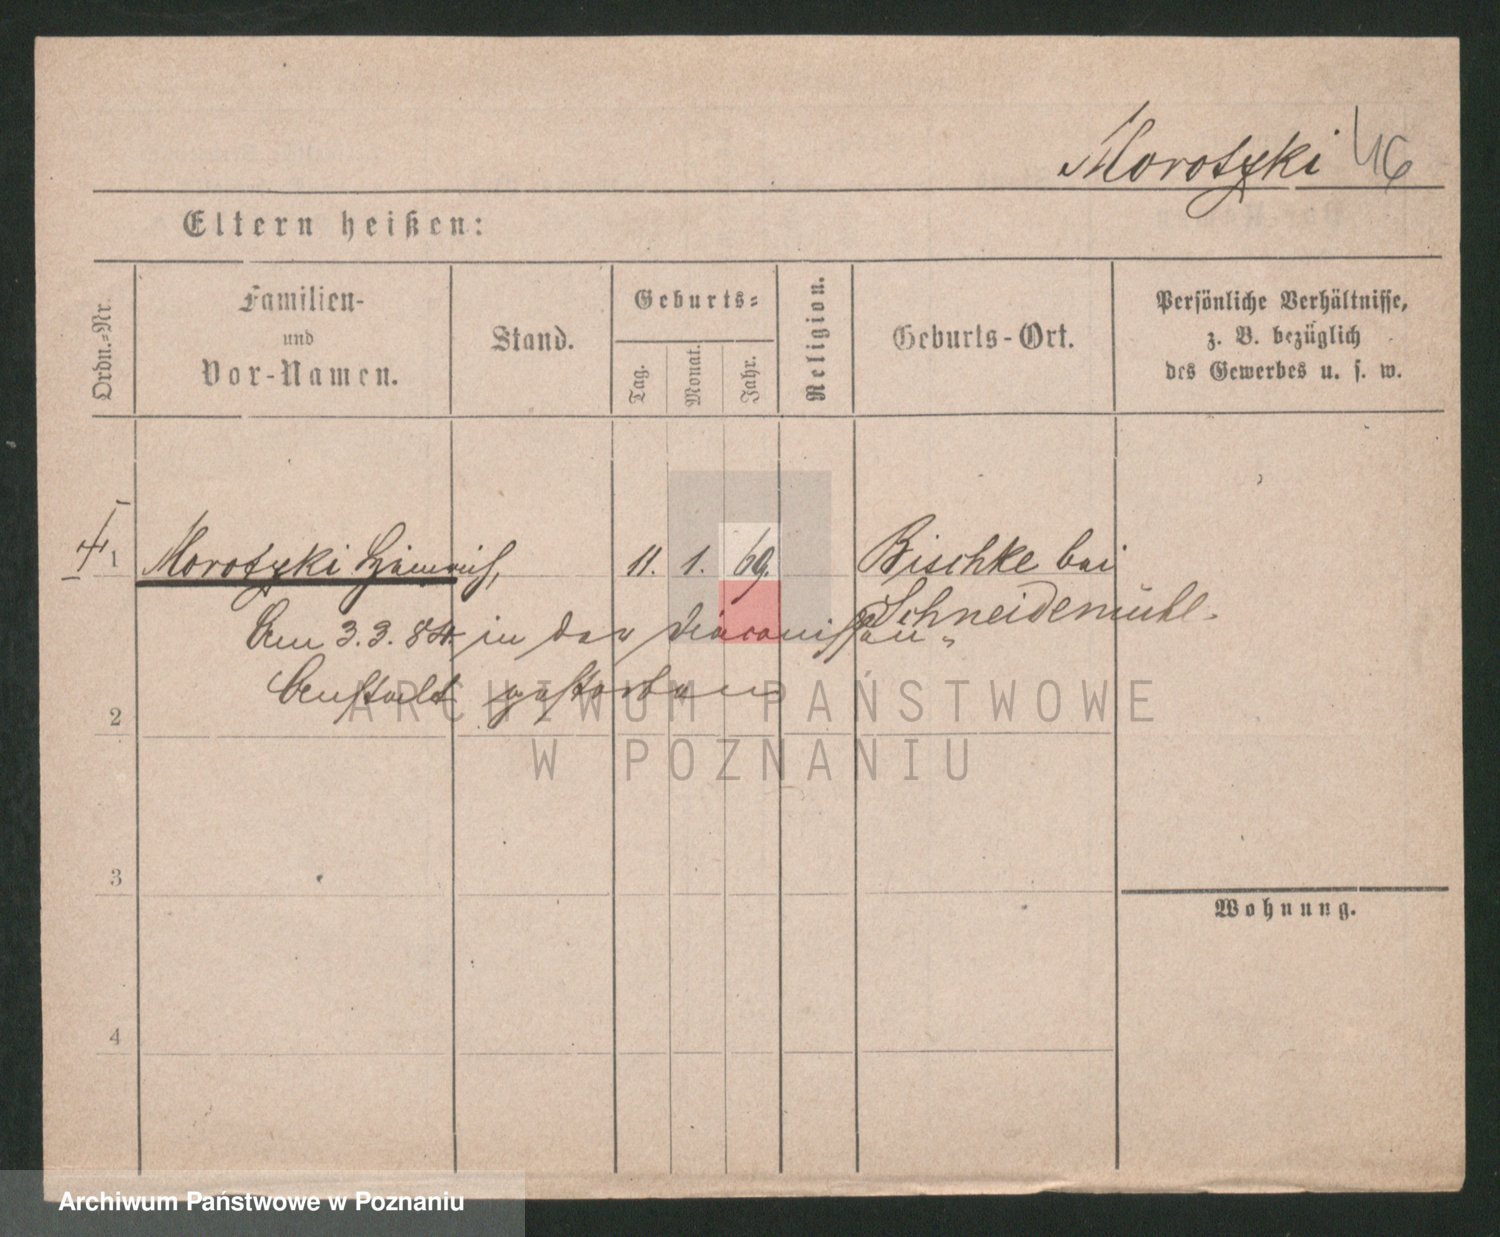 Morotzki 46
Eltern heißen:
Ordn.-Nr.
Familien-
und
Vor-Namen.
Stand.
Geburts-
Tag.
Monat.
Jahr.
Religion.
Geburts-Ort.
Persönliche Verhältnisse,
z. B. bezüglich
des Gewerbes u. s. w.
1 Morotzki Heinrich, 11. 1. 69. Bischke bei
Schneidemühl.
Am 3.3.84. in der Diaconissen-
Anstalt gestorben
2
3
4
Wohnung.
ARCHIWUM PAŃSTWOWE
W POZNANIU
Archiwum Państwowe w Poznaniu